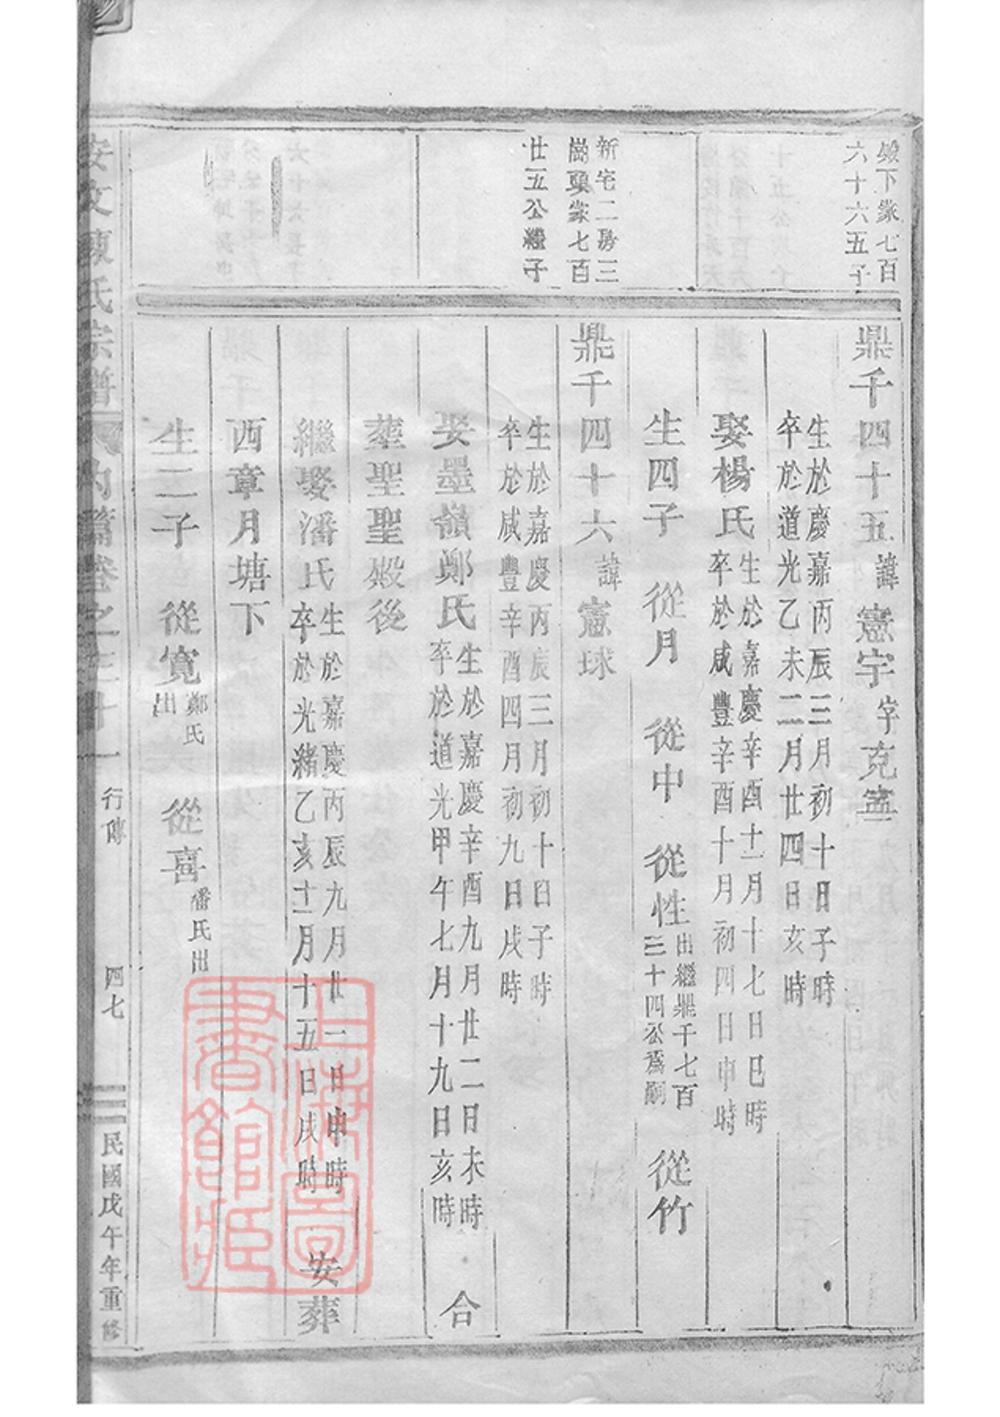 殿下派七百
六十六五子
新宅二房三
崗頭派七百
廿五公繼子
鼎千四十五諱憲宇字克寧
生於慶嘉丙辰三月初十日子時
卒於道光乙未二月廿四日亥時
娶楊氏
生於嘉慶辛酉十一月十七日巳時
卒於咸豐辛酉十月初四日申時
生四子 從月 從中 從性
出繼鼎千七百
三十四公為嗣
從竹
鼎千四十六諱憲球
生於嘉慶丙辰三月初十日子時
卒於咸豐辛酉四月初九日戌時
娶墨嶺鄭氏
生於嘉慶辛酉九月廿二日未時
卒於道光甲午七月十九日亥時
合
葬聖聖殿後
繼娶潘氏
生於嘉慶丙辰九月廿一日申時
卒於光緒乙亥十二月十五日戌時
安葬
西章月塘下
生二子 從寬
鄭氏
出
從喜
潘氏出
安文陳氏宗譜 內篇卷之三十一
行傳
四七
民國戊午年重修
上海圖書館藏